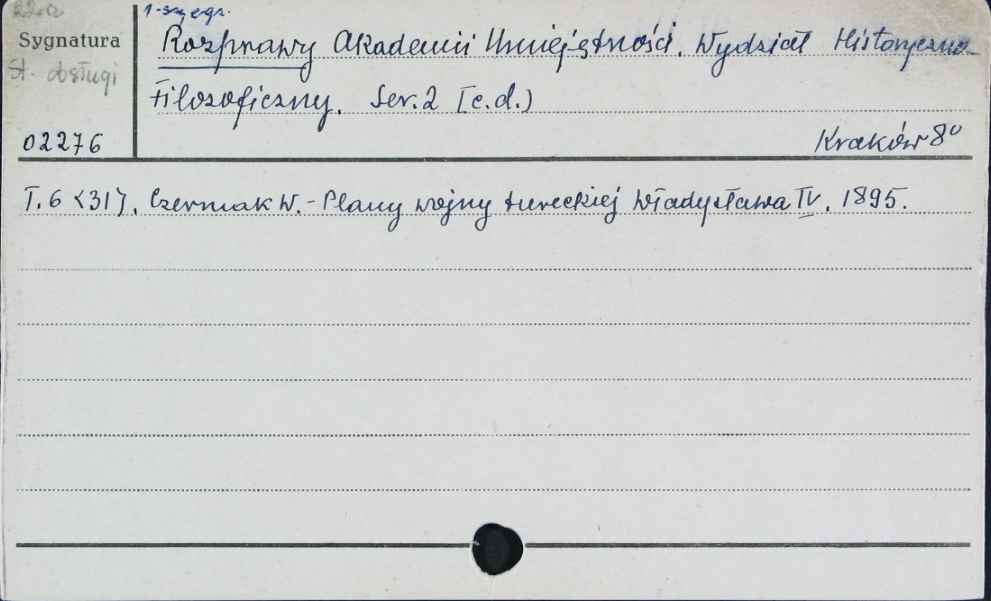 1-szy egz.
Sygnatura
St. obsługi
02276
Rozprawy Akademii Umiejętności. Wydział Historyczno-
Filozoficzny. Ser. 2 [c.d.)
Kraków 8°
T. 6 <31>. Czermak W. - Plany wojny tureckiej Władysława IV. 1895.